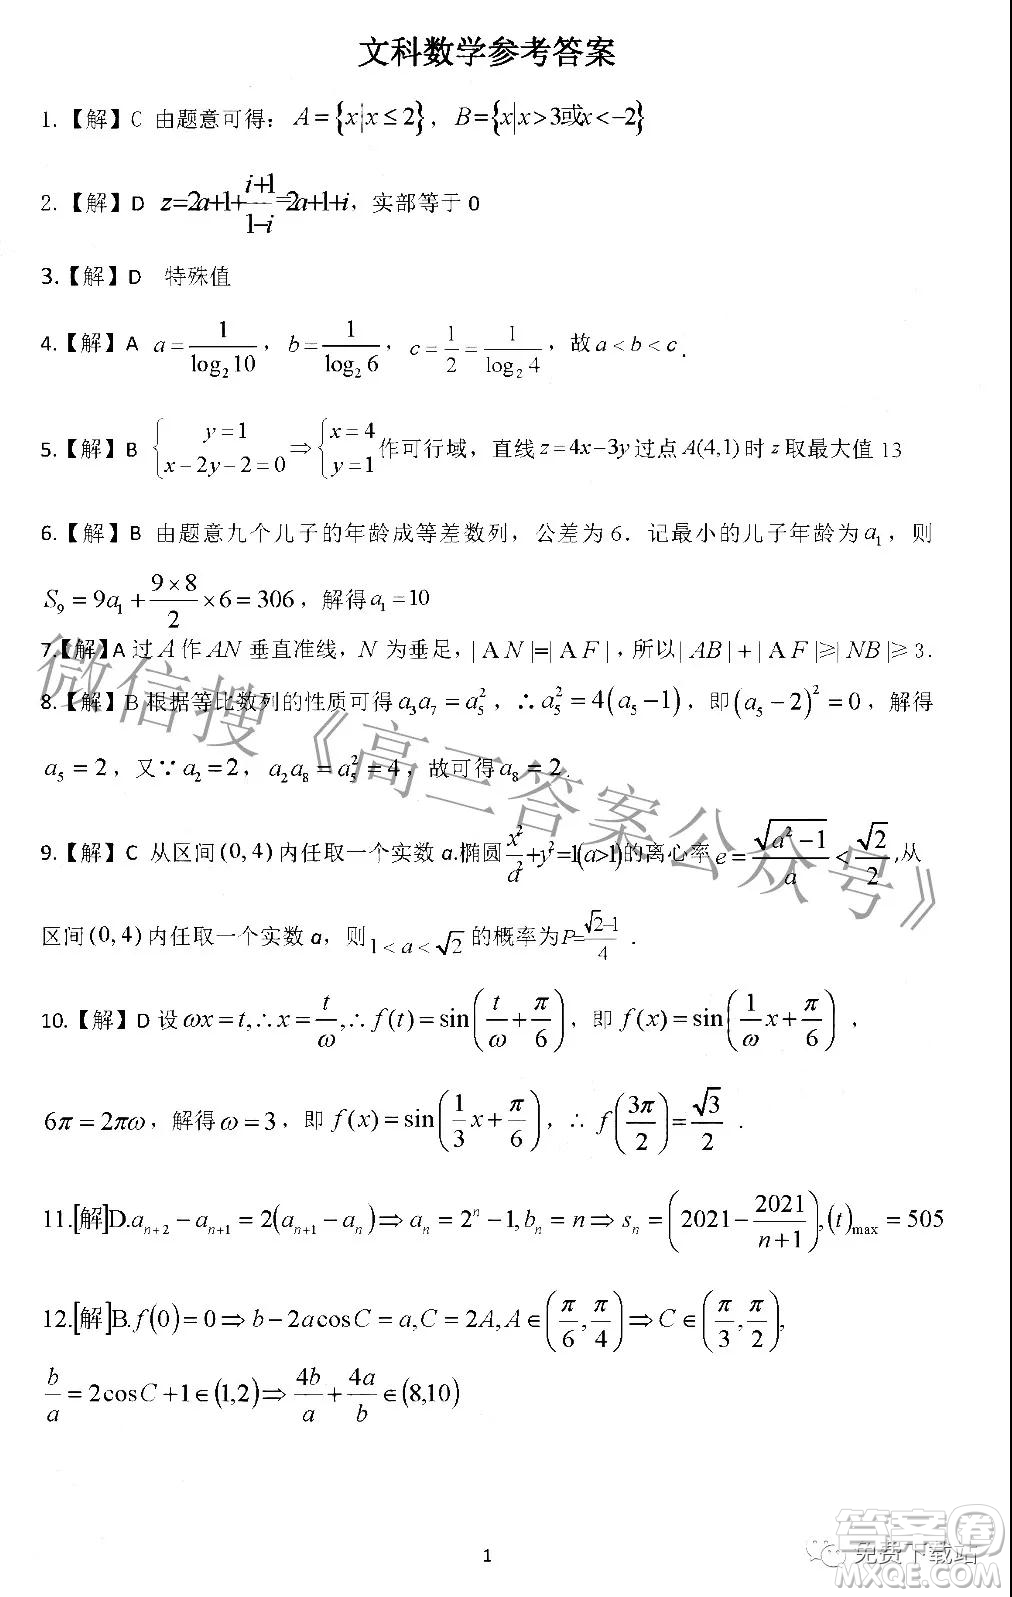 文科数学参考答案
1.【解】C 由题意可得: A={x|x≤2}, B={x|x>3或x<-2}
2.【解】D z=2a+1+\frac{i+1}{1-i}=2a+1+i, 实部等于 0
3.【解】D 特殊值
4.【解】A a=\frac{1}{\log_2 10}, b=\frac{1}{\log_2 6}, c=\frac{1}{2}=\frac{1}{\log_2 4}, 故 a<b<c.
5.【解】B {y=1, x-2y-2=0 ⇒ {x=4, y=1 作可行域, 直线 z=4x-3y 过点 A(4,1) 时 z 取最大值 13
6.【解】B 由题意九个儿子的年龄成等差数列, 公差为 6. 记最小的儿子年龄为 a_1, 则
S_9=9a_1+\frac{9×8}{2}×6=306, 解得 a_1=10
7.【解】A 过 A 作 AN 垂直准线, N 为垂足, |AN|=|AF|, 所以|AB|+|AF|≥|NB|≥3.
8.【解】B 根据等比数列的性质可得 a_3a_7=a_5^2, ∴a_5^2=4(a_5-1), 即(a_5-2)^2=0, 解得
a_5=2, 又∵a_2=2, a_2a_8=a_5^2=4, 故可得 a_8=2.
9.【解】C 从区间(0,4)内任取一个实数 a.椭圆\frac{x^2}{a^2}+y^2=1(a>1)的离心率 e=\frac{\sqrt{a^2-1}}{a}<\frac{\sqrt{2}}{2},从
区间(0,4)内任取一个实数 a, 则 1<a<\sqrt{2} 的概率为P=\frac{\sqrt{2}-1}{4}.
10.【解】D 设 ωx=t,∴x=\frac{t}{ω},∴f(t)=sin(\frac{t}{ω}+\frac{π}{6}), 即 f(x)=sin(\frac{1}{ω}x+\frac{π}{6}),
6π=2πω, 解得 ω=3, 即 f(x)=sin(\frac{1}{3}x+\frac{π}{6}), ∴f(\frac{3π}{2})=\frac{\sqrt{3}}{2}.
11.[解]D.a_{n+2}-a_{n+1}=2(a_{n+1}-a_n)⇒a_n=2^n-1,b_n=n⇒s_n=(2021-\frac{2021}{n+1}),(t)_{max}=505
12.[解]B.f(0)=0⇒b-2acosC=a,C=2A,A∈(\frac{π}{6},\frac{π}{4})⇒C∈(\frac{π}{3},\frac{π}{2}),
\frac{b}{a}=2cosC+1∈(1,2)⇒\frac{4b}{a}+\frac{4a}{b}∈(8,10)
微信搜《高三答案公众号》
1
免费下载站
答案圈
MXQE.COM